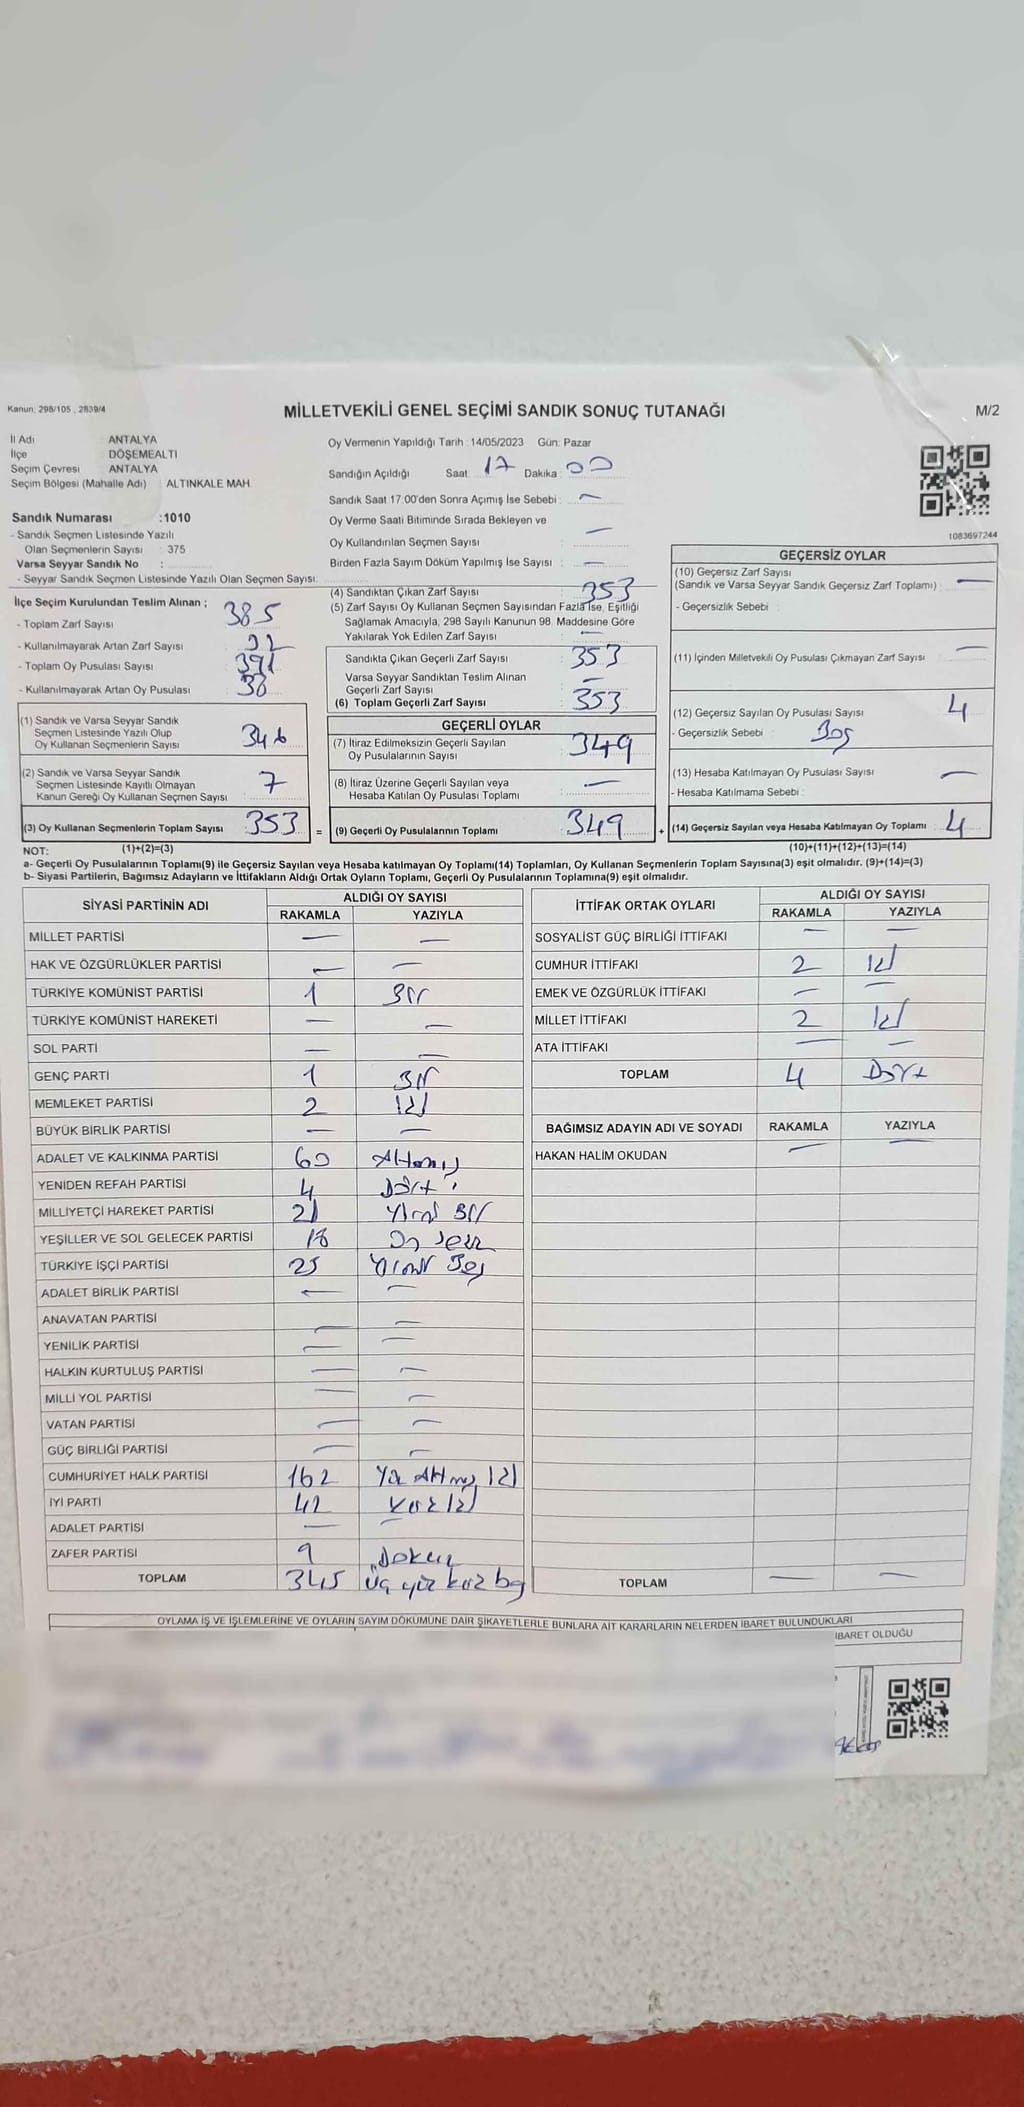 Kanun: 298/105 , 2839/4
MİLLETVEKİLİ GENEL SEÇİMİ SANDIK SONUÇ TUTANAĞI
M/2
İl Adı ANTALYA
İlçe DÖŞEMEALTI
Seçim Çevresi ANTALYA
Seçim Bölgesi (Mahalle Adı) : ALTINKALE MAH.
Sandık Numarası :1010
- Sandık Seçmen Listesinde Yazılı
Olan Seçmenlerin Sayısı : 375
Varsa Seyyar Sandık No :
- Seyyar Sandık Seçmen Listesinde Yazılı Olan Seçmen Sayısı:
Oy Vermenin Yapıldığı Tarih : 14/05/2023 Gün: Pazar
Sandığın Açıldığı Saat : 17 Dakika : 00
Sandık Saat 17:00'den Sonra Açımış İse Sebebi : —
Oy Verme Saati Bitiminde Sırada Bekleyen ve
Oy Kullandırılan Seçmen Sayısı : —
Birden Fazla Sayım Döküm Yapılmış İse Sayısı : —
1083697244
İlçe Seçim Kurulundan Teslim Alınan ;
- Toplam Zarf Sayısı : 385
- Kullanılmayarak Artan Zarf Sayısı :
- Toplam Oy Pusulası Sayısı : 391
- Kullanılmayarak Artan Oy Pusulası : 38
(1) Sandık ve Varsa Seyyar Sandık
Seçmen Listesinde Yazılı Olup
Oy Kullanan Seçmenlerin Sayısı : 346
(2) Sandık ve Varsa Seyyar Sandık
Seçmen Listesinde Kayıtlı Olmayan
Kanun Gereği Oy Kullanan Seçmen Sayısı : 7
(3) Oy Kullanan Seçmenlerin Toplam Sayısı : 353 =
(1)+(2)=(3)
(4) Sandıktan Çıkan Zarf Sayısı : 353
(5) Zarf Sayısı Oy Kullanan Seçmen Sayısından Fazla İse, Eşitliği
Sağlamak Amacıyla, 298 Sayılı Kanunun 98. Maddesine Göre
Yakılarak Yok Edilen Zarf Sayısı : —
Sandıkta Çıkan Geçerli Zarf Sayısı : 353
Varsa Seyyar Sandıktan Teslim Alınan
Geçerli Zarf Sayısı : —
(6) Toplam Geçerli Zarf Sayısı : 353
GEÇERLİ OYLAR
(7) İtiraz Edilmeksizin Geçerli Sayılan
Oy Pusulalarının Sayısı : 349
(8) İtiraz Üzerine Geçerli Sayılan veya
Hesaba Katılan Oy Pusulası Toplamı : —
(9) Geçerli Oy Pusulalarının Toplamı : 349 +
GEÇERSİZ OYLAR
(10) Geçersiz Zarf Sayısı
(Sandık ve Varsa Seyyar Sandık Geçersiz Zarf Toplamı) : —
- Geçersizlik Sebebi :
(11) İçinden Milletvekili Oy Pusulası Çıkmayan Zarf Sayısı : —
(12) Geçersiz Sayılan Oy Pusulası Sayısı : 4
- Geçersizlik Sebebi : Boş
(13) Hesaba Katılmayan Oy Pusulası Sayısı : —
- Hesaba Katılmama Sebebi :
(14) Geçersiz Sayılan veya Hesaba Katılmayan Oy Toplamı : 4
(10)+(11)+(12)+(13)=(14)
NOT:
a- Geçerli Oy Pusulalarının Toplamı(9) ile Geçersiz Sayılan veya Hesaba katılmayan Oy Toplamı(14) Toplamları, Oy Kullanan Seçmenlerin Toplam Sayısına(3) eşit olmalıdır. (9)+(14)=(3)
b- Siyasi Partilerin, Bağımsız Adayların ve İttifakların Aldığı Ortak Oyların Toplamı, Geçerli Oy Pusulalarının Toplamına(9) eşit olmalıdır.
SİYASİ PARTİNİN ADI ALDIĞI OY SAYISI
RAKAMLA YAZIYLA
MİLLET PARTİSİ — —
HAK VE ÖZGÜRLÜKLER PARTİSİ — —
TÜRKİYE KOMÜNİST PARTİSİ 1 Bir
TÜRKİYE KOMÜNİST HAREKETİ — —
SOL PARTİ — —
GENÇ PARTİ 1 Bir
MEMLEKET PARTİSİ 2 İki
BÜYÜK BİRLİK PARTİSİ — —
ADALET VE KALKINMA PARTİSİ 60 Altmış
YENİDEN REFAH PARTİSİ 4 Dört
MİLLİYETÇİ HAREKET PARTİSİ 21 Yirmi Bir
YEŞİLLER VE SOL GELECEK PARTİSİ 18 On sekiz
TÜRKİYE İŞÇİ PARTİSİ 25 Yirmi Beş
ADALET BİRLİK PARTİSİ — —
ANAVATAN PARTİSİ — —
YENİLİK PARTİSİ — —
HALKIN KURTULUŞ PARTİSİ — —
MİLLİ YOL PARTİSİ — —
VATAN PARTİSİ — —
GÜÇ BİRLİĞİ PARTİSİ — —
CUMHURİYET HALK PARTİSİ 162 Yüz Altmış İki
İYİ PARTİ 42 Kırk İki
ADALET PARTİSİ — —
ZAFER PARTİSİ 9 Dokuz
TOPLAM 345 üç yüz kırk beş
İTTİFAK ORTAK OYLARI ALDIĞI OY SAYISI
RAKAMLA YAZIYLA
SOSYALİST GÜÇ BİRLİĞİ İTTİFAKI — —
CUMHUR İTTİFAKI 2 İki
EMEK VE ÖZGÜRLÜK İTTİFAKI — —
MİLLET İTTİFAKI 2 İki
ATA İTTİFAKI — —
TOPLAM 4 Dört
BAĞIMSIZ ADAYIN ADI VE SOYADI RAKAMLA YAZIYLA
HAKAN HALİM OKUDAN — —
TOPLAM — —
OYLAMA İŞ VE İŞLEMLERİNE VE OYLARIN SAYIM DÖKÜMÜNE DAİR ŞİKAYETLERLE BUNLARA AİT KARARLARIN NELERDEN İBARET BULUNDUKLARI
İBARET OLDUĞU